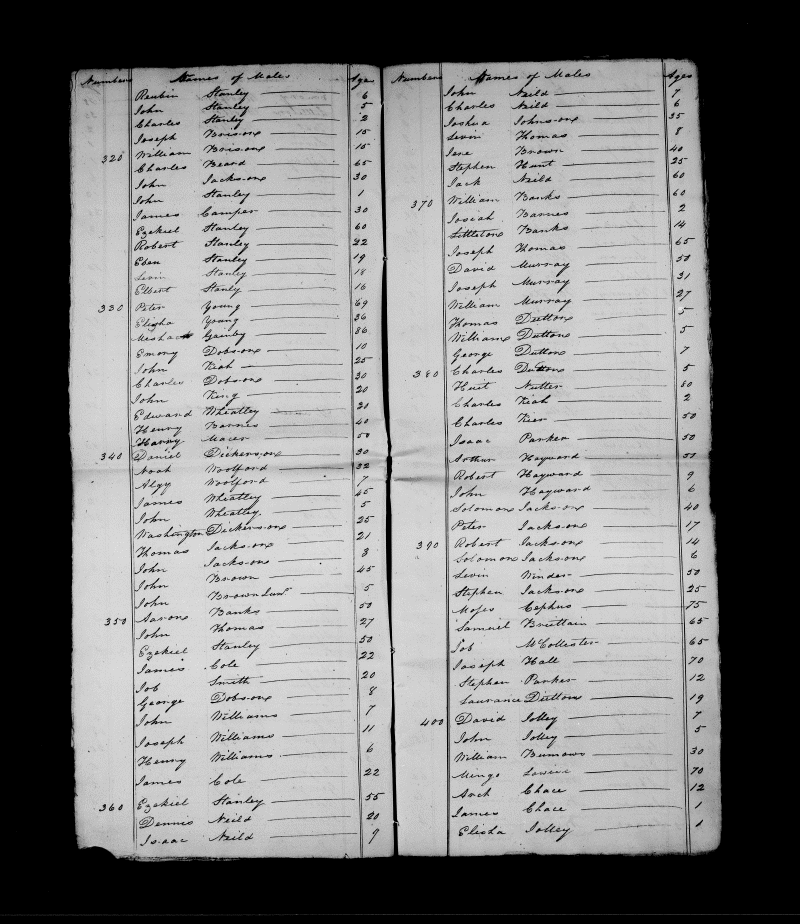 Numbers Names of Males Ages
Reubin Stanley 6
John Stanley 5
Charles Stanley 2
Joseph Brisone 15
320 William Brisone 15
Charles Beard 65
John Jacksone 30
John Stanley 1
James Camper 30
Ezekiel Stanley 60
Robert Stanley 22
Eben Stanley 19
Levin Stanley 18
Elbert Stanly 16
330 Peter Young 69
Elisha Young 36
Meshack Gainby 86
Emory Dobsone 10
John Kiah 25
Charles Dobsone 30
John King 20
Edward Wheatley 21
Henry Barnes 40
Harry Macer 50
340 Daniel Dickersone 30
Noah Woolford 32
Algy Woolford 7
James Wheatley 45
John Wheatley 5
Washington Dickersone 25
Thomas Jacksone 21
John Jacksone 3
John Brown 45
John Brown Junr 5
350 Aarone Banks 50
John Thomas 27
Ezekiel Stanley 50
James Cole 22
Job Smith 20
George Dobsone 8
John Williams 7
Joseph Williams 11
Henry Williams 6
James Cole 22
360 Ezekiel Stanley 55
Dennis Neild 20
Isaac Neild 9
Numbers Names of Males Ages
John Neild 7
Charles Neild 6
Joshua Johnsone 35
Levin Thomas 8
Jere Brown 40
Stephen Hunt 25
Jack Neild 60
370 William Banks 60
Josiah Barnes 2
Littletone Banks 14
Joseph Thomas 65
David Murray 50
Joseph Murray 31
William Murray 27
Thomas Duttone 5
Williame Duttone 5
George Duttone 7
380 Charles Duttone 5
Hust Nutter 80
Charles Kiah 2
Charles Kier 50
Isaac Parker 50
Arthur Hayward 51
Robert Hayward 9
John Hayward 6
Solomone Jacksone 40
Peter Jacksone 17
390 Robert Jacksone 14
Solomone Jacksone 6
Levin Winder 50
Stephen Jacksone 25
Moses Cephus 75
Samuel Brittain 65
Job McCollister 65
Joseph Hall 70
Stephen Parker 12
Laurance Duttone 19
400 David Jolley 7
John Jolley 5
William Bumows 30
Mingo 70
Arch Chace 12
James Chace 1
Elisha Jolley 1